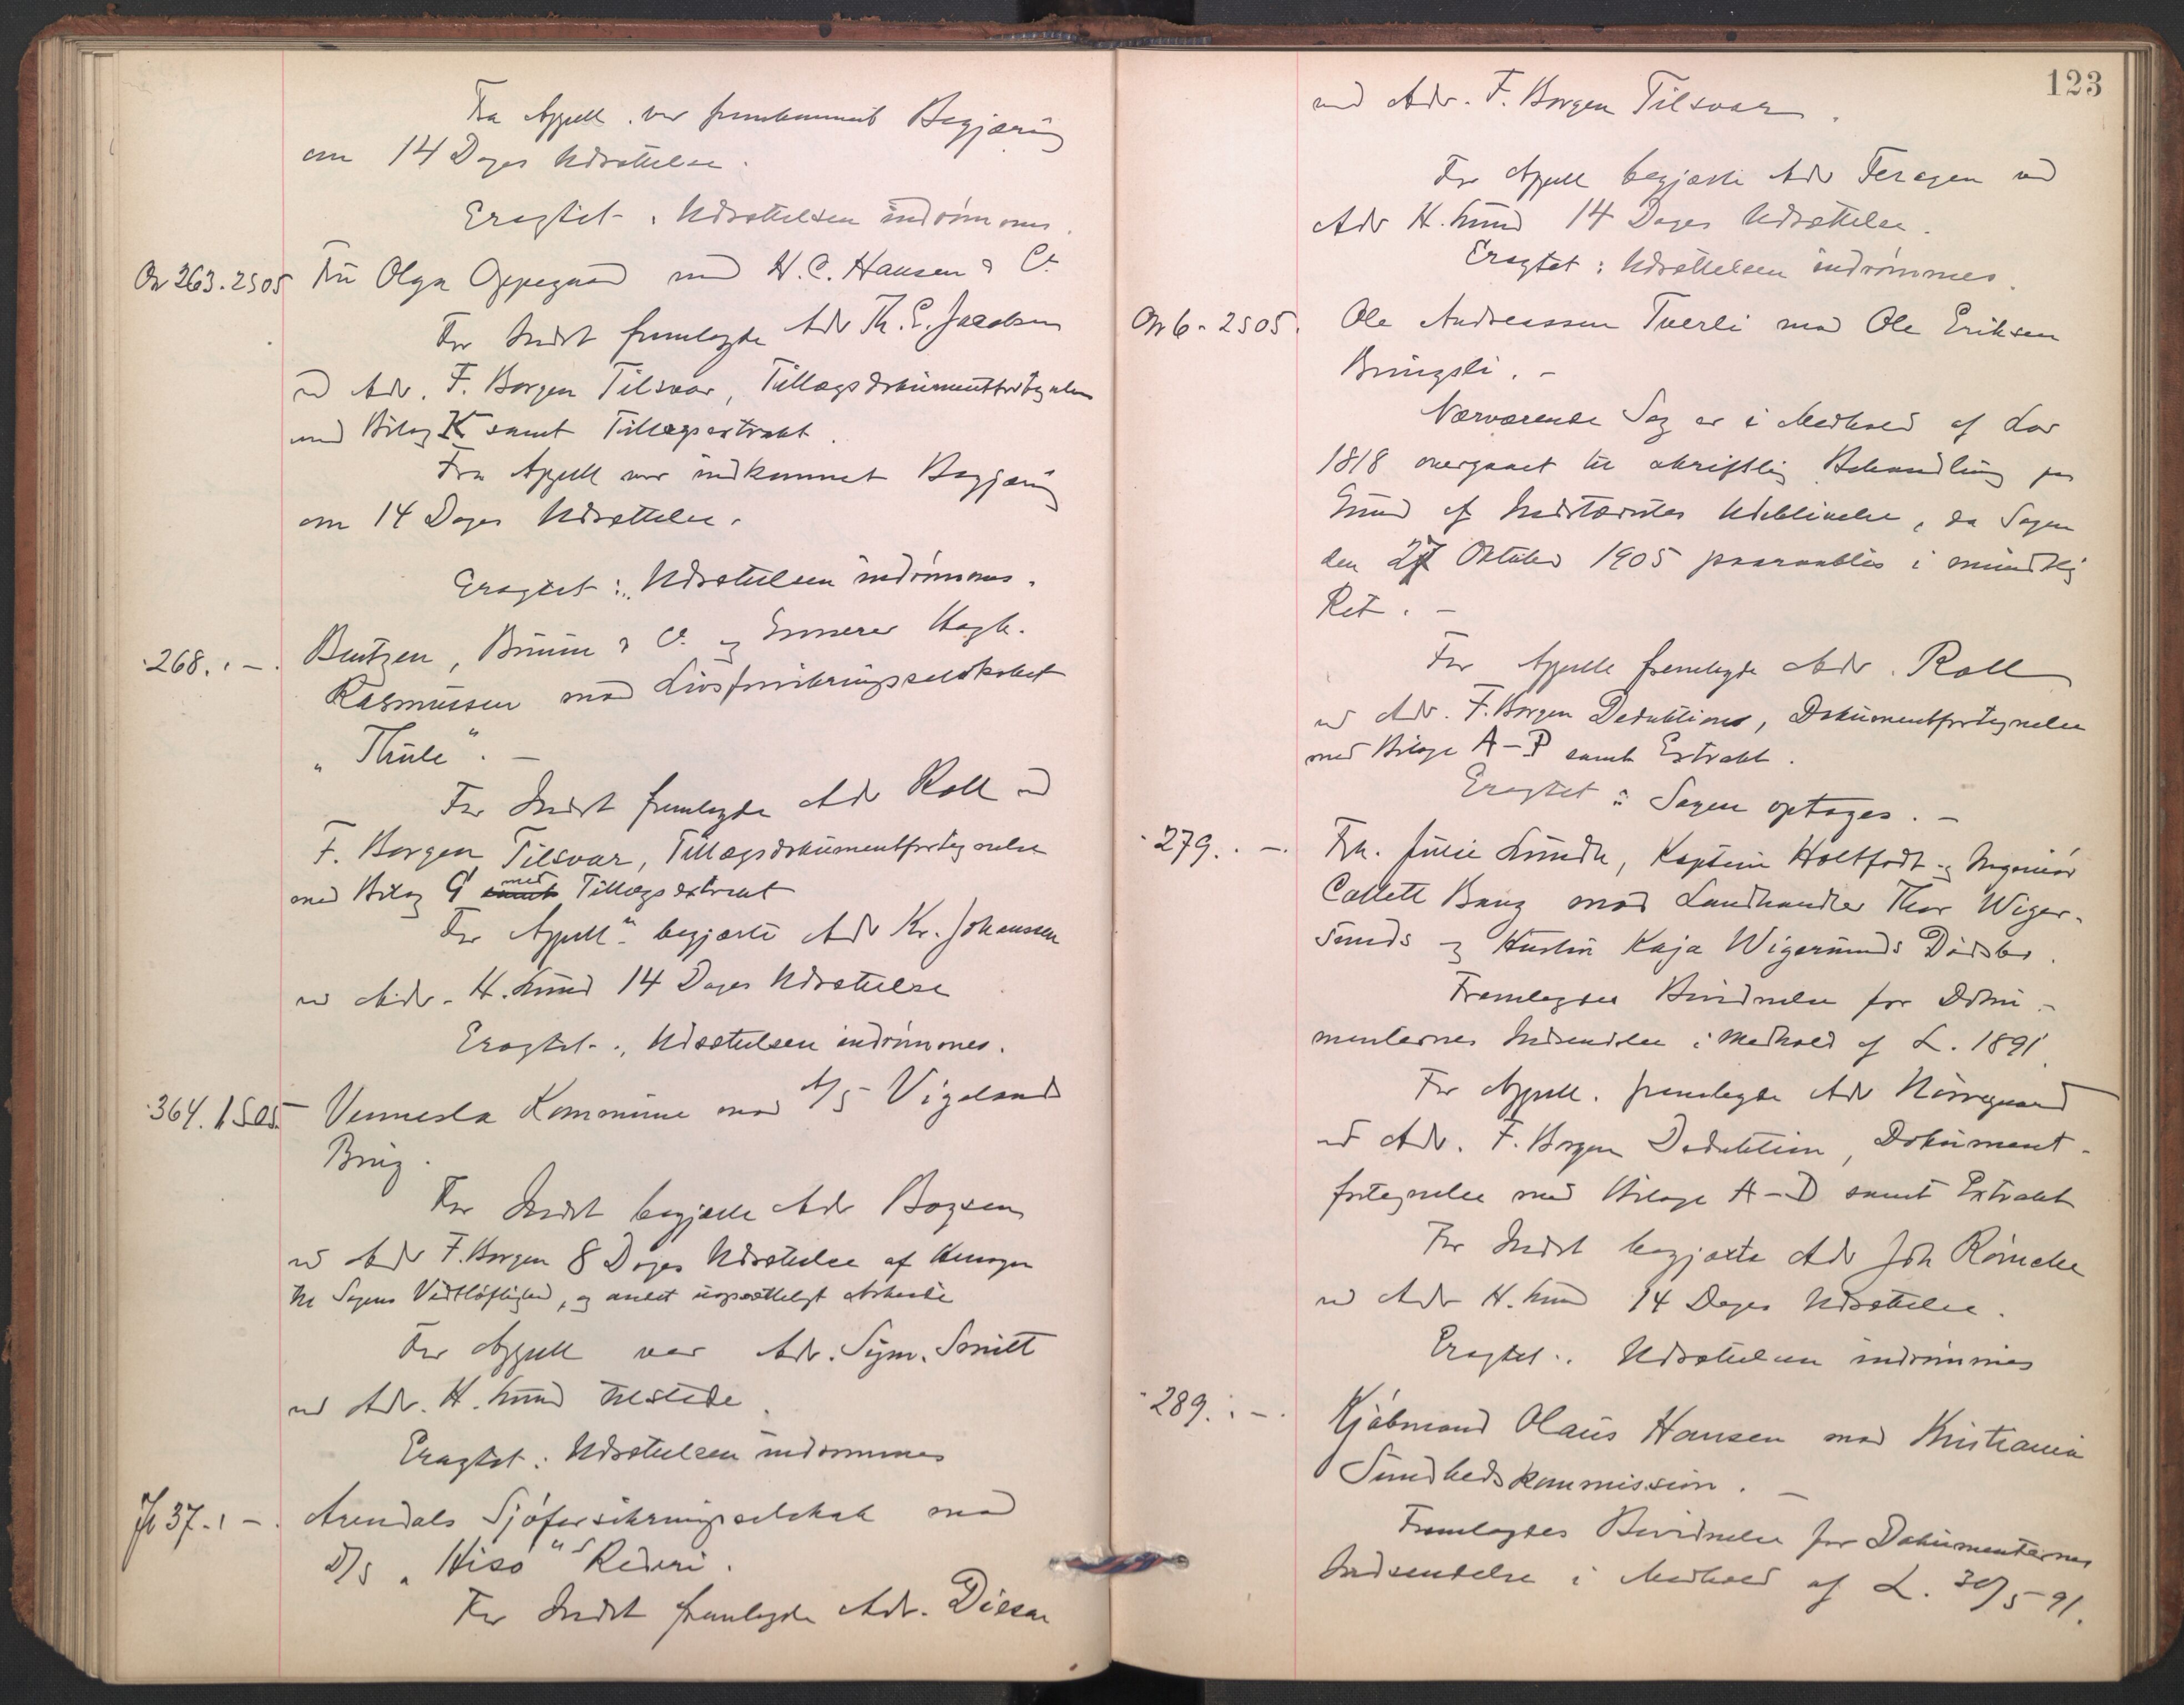 Fra Appell. var fremkommet Begjæring
om 14 Dages Udsættelse.
Eragtet: Udsættelsen indrømmes.
263. 2 S 05 Fru Olga Oppegaard mod H. C. Hansen & Co
For Indst fremlagde Adv Th. E. Jacobsen
ved Adv. F. Borgen Tilsvar, Tillægsdokumentfortegnelse
med Bilag K samt Tillægsextrakt.
Fra Appell var indkommet Begjæring
om 14 Dages Udsættelse.
Eragtet: Udsættelsen indrømmes.
268. : — . Bentzen, Bruun & Co og Hagb.
Rasmussen mod Livsforsikringsselskabet
„Thule“. —
For Indst fremlagde Adv Roll ved
F. Borgen Tilsvar, Tillægsdokumentfortegnelse
med Bilag G samt med Tillægsextrakt
For Appell. begjærte Adv Kr. Johanssen
ved Adv. H. Lund 14 Dages Udsættelse
Eragtet: Udsættelsen indrømmes.
364. 1 S 05 Vennesla Kommune mod A/S Vigelands
Brug.
For Indst begjærte Adv Boysen
ved Adv F. Borgen 8 Dages Udsættelse af Hensyn
til Sagens Vidtløftighed, og andet uopsætteligt Arbeide
For Appell var Adv. Sym. Smitt
ved Adv. H. Lund tilstede.
Eragtet: Udsættelsen indrømmes
37. : — . Arendals Sjøforsikringsselskab mod
D/S „Hisø“s Rederi.
For Indst fremlagde Adv. Diesen
123
ved Adv. F. Borgen Tilsvar.
For Appell begjærte Adv Feragen ved
Adv H. Lund 14 Dages Udsættelse.
Eragtet: Udsættelsen indrømmes.
6 - 2 S 05. Ole Andreassen Tverli mod Ole Eriksen
Bringsli. —
Nærværende Sag er i Medhold af Lov
1818 overgaaet til skriftlig Behandling paa
Grund af Indstævntes Udeblivelse, da Sagen
den 27 Oktober 1905 paaraabtes i mundtlig
Ret. —
For Appell fremlagde Adv. Roll
ved Adv. F. Borgen Deduktion, Dokumentfortegnelse
med Bilage A-P samt Extrakt.
Eragtet: Sagen optages. —
279. . — . Frk. Julie Lundh, Kaptein Holtfodt og Ingeniør
Collett Bang mod Landhandler Thor Wiger-
sunds og Hustru Kaja Wigersunds Dødsbo.
Fremlagdes Bevidnelse for Doku-
menternes Indsendelse i Medhold af L. 1891
For Appell. fremlagde Adv Nørregaard
ved Adv. F. Borgen Deduktion, Dokument-
fortegnelse med Bilage A-D samt Extrakt
For Indst begjærte Adv Joh Rømcke
ved Adv H. Lund 14 Dages Udsættelse.
Eragtet: Udsættelsen indrømmes
289. : — . Kjøbmand Olaus Hansen mod Kristiania
Sundhedskommission. —
Fremlagdes Bevidnelse for Dokumenternes
Indsendelse i Medhold af L. 30/5 91.